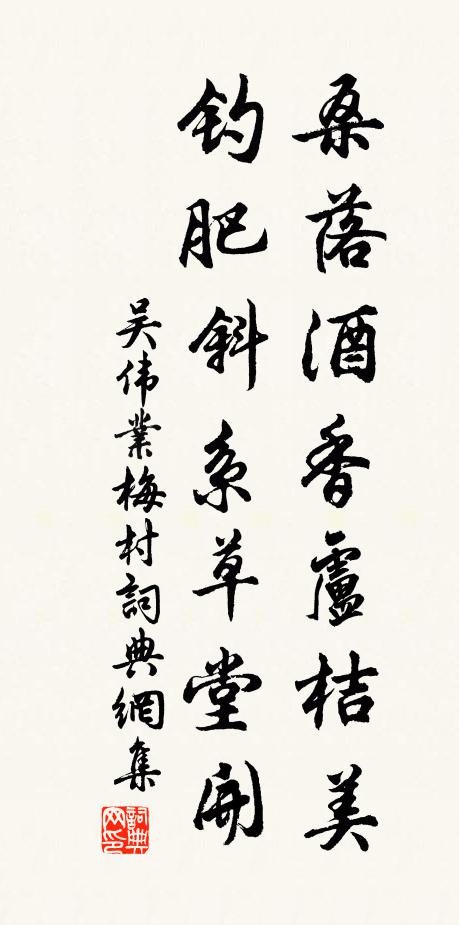 桑落酒香盧桔美
釣肥斜系草堂開
吴伟業梅村詞典網集
詞典网印